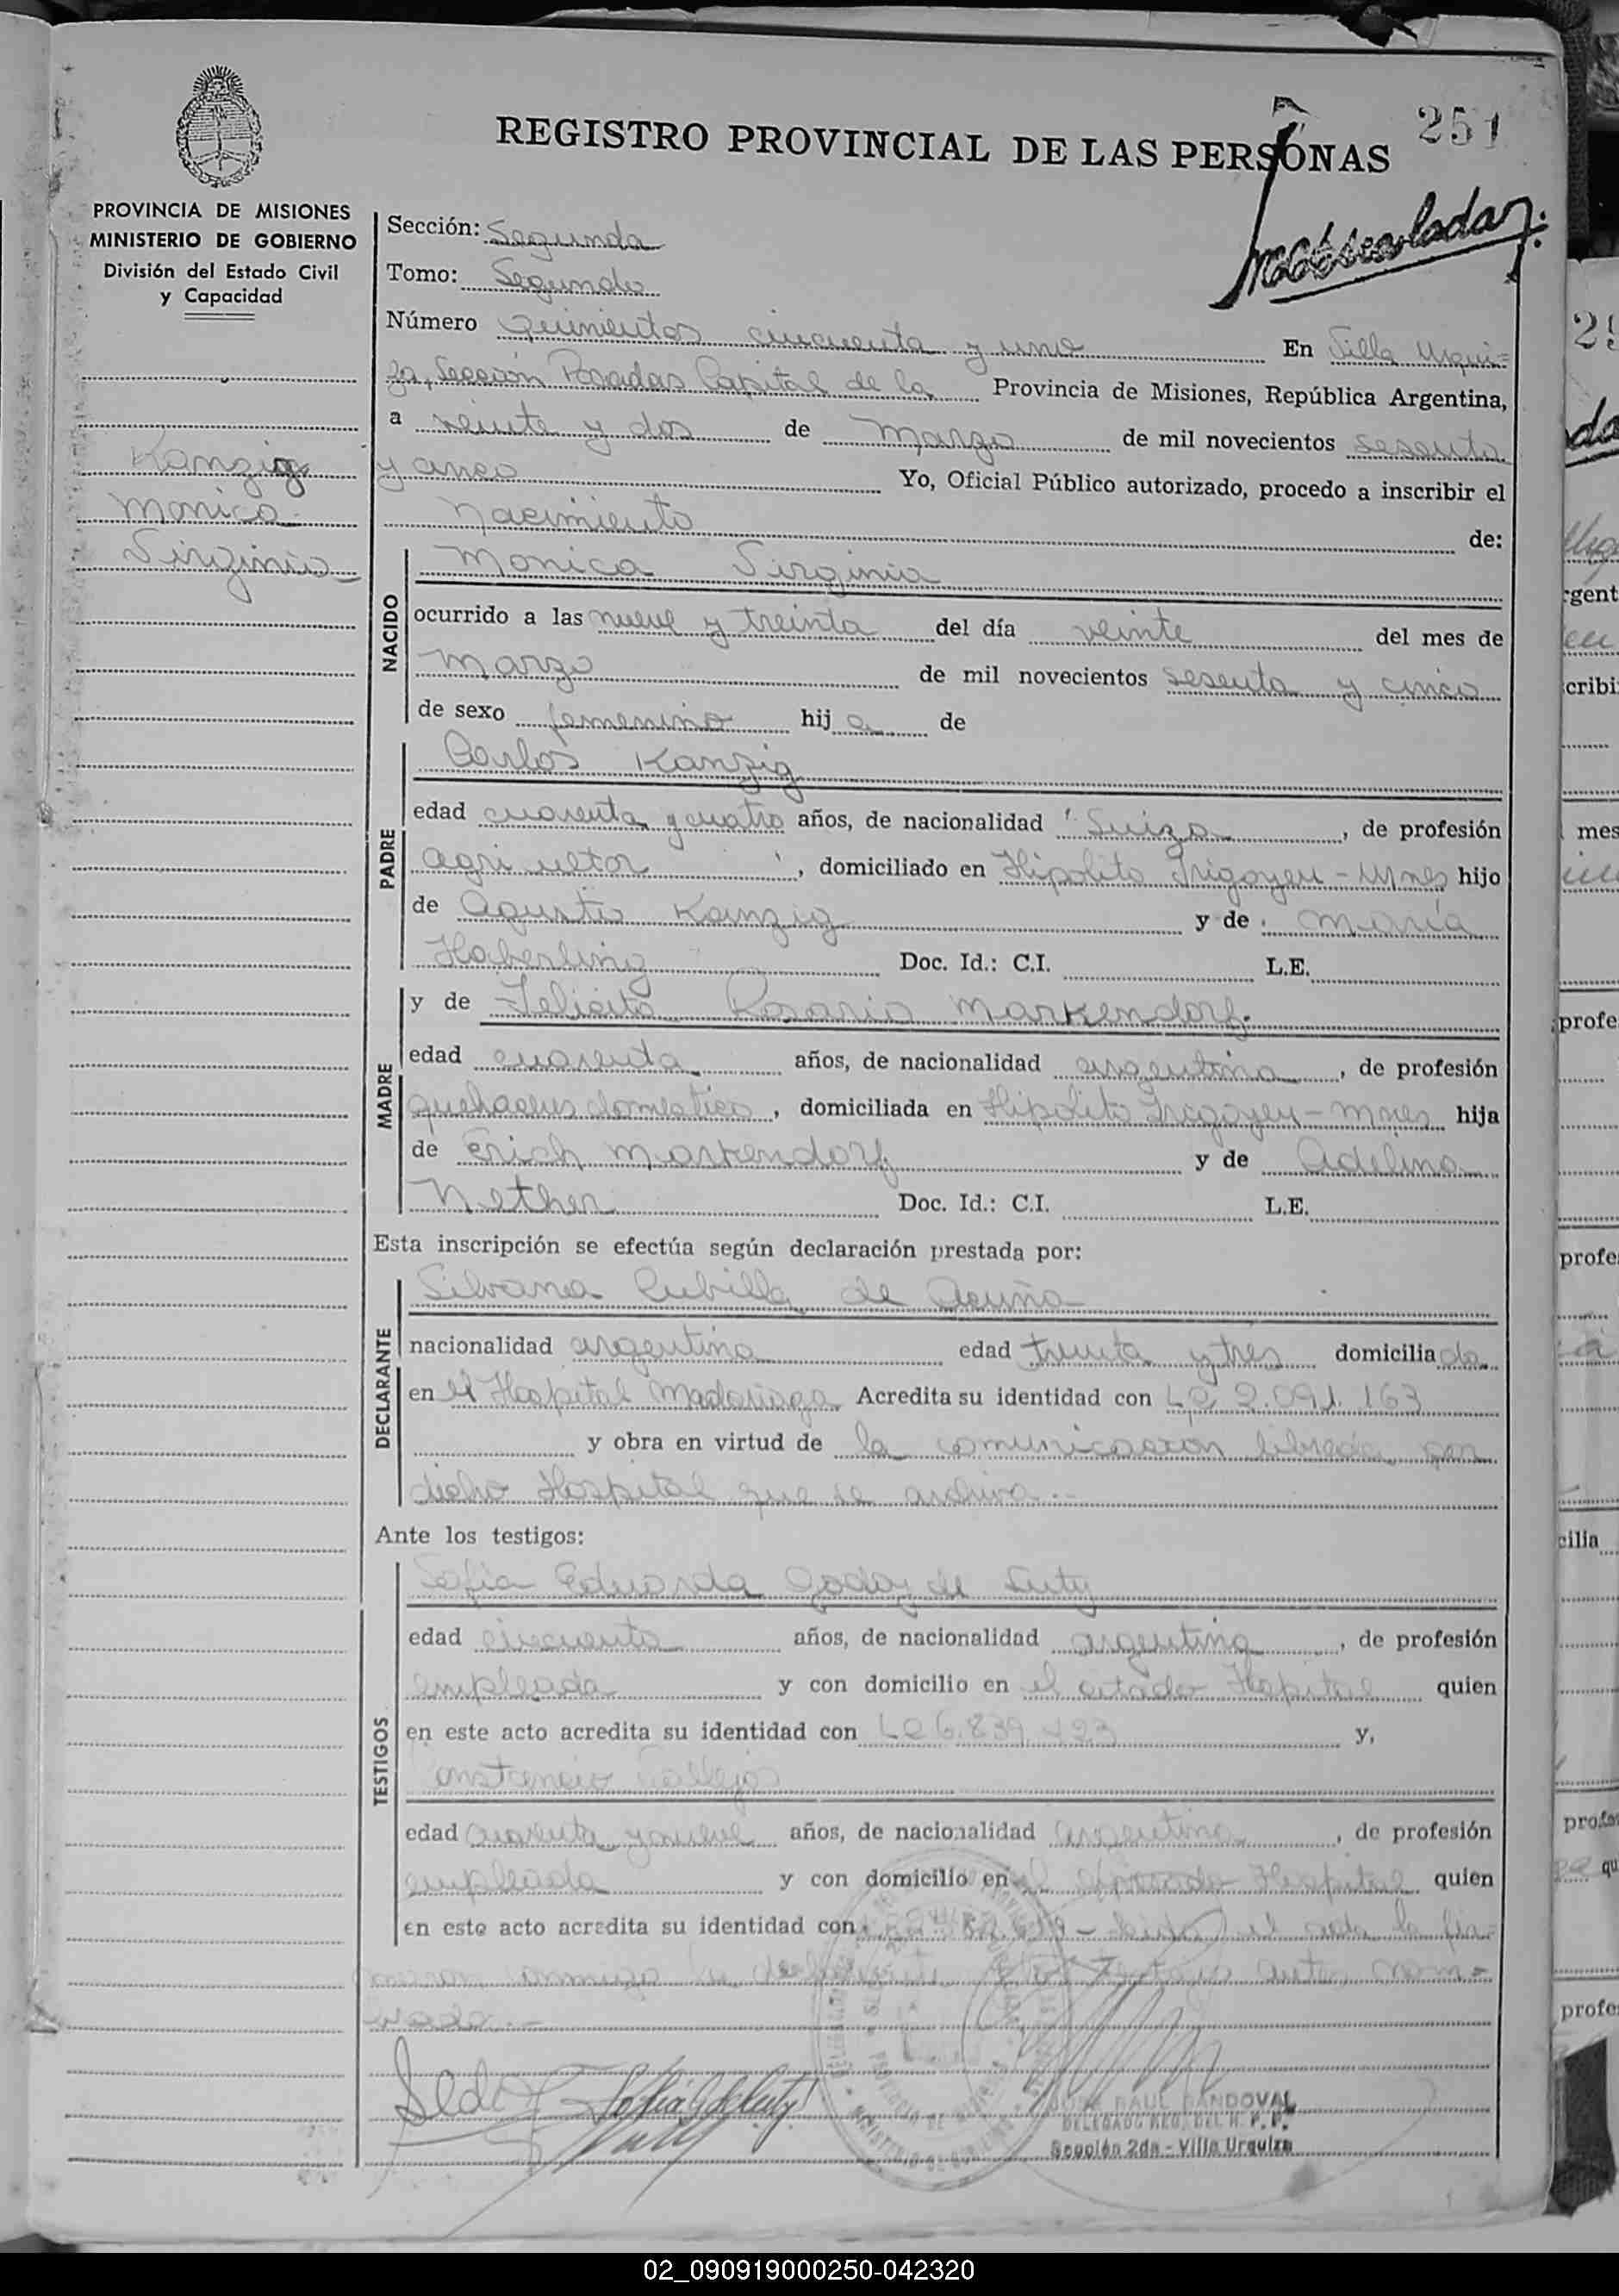 251
REGISTRO PROVINCIAL DE LAS PERSONAS
PROVINCIA DE MISIONES
MINISTERIO DE GOBIERNO
División del Estado Civil
y Capacidad
Kanzig
Monica
Virginia
Sección: Segunda
Tomo: Segundo
Número quinientos cincuenta y uno En Villa Urqui=
za, Sección Posadas Capital de la Provincia de Misiones, República Argentina,
a veinte y dos de Marzo de mil novecientos sesenta
y cinco Yo, Oficial Público autorizado, procedo a inscribir el
Nacimiento de:
NACIDO
Monica Virginia
ocurrido a las nueve y treinta del día veinte del mes de
Marzo de mil novecientos sesenta y cinco
de sexo femenino hija de
PADRE
Carlos Kanzig
edad cuarenta y cuatro años, de nacionalidad Suiza, de profesión
agricultor, domiciliado en Hipolito Irigoyen - Mnes hijo
de Agusto Kanzig y de María
Haberling Doc. Id.: C.I. L.E.
MADRE
y de Felicita Rosario Markendorf.
edad cuarenta años, de nacionalidad argentina, de profesión
quehaceres domestico, domiciliada en Hipolito Irigoyen - Mnes hija
de Erich Markendorf y de Adelina
Nether Doc. Id.: C.I. L.E.
Esta inscripción se efectúa según declaración prestada por:
DECLARANTE
Silvana Cubilla de Acuña
nacionalidad argentina edad treinta y tres domiciliada
en el Hospital Madariaga Acredita su identidad con LC 2.091.163
y obra en virtud de la comunicacion librada por
dicho Hospital que se archiva.-
Ante los testigos:
TESTIGOS
Sofia Eduarda Godoy de Luty
edad cincuenta años, de nacionalidad argentina, de profesión
empleada y con domicilio en el citado Hospital quien
en este acto acredita su identidad con LC 6.839.423 y,
Vallejos
edad cuarenta y nueve años, de nacionalidad argentina, de profesión
empleada y con domicilio en el Hospital quien
en este acto acredita su identidad con leida el acta la fir=
maron conmigo la declarante y los testigos antes nom=
RAUL SANDOVAL
DELEGADO REG. DEL R. P. P.
Sección 2da - Villa Urquiza
02_090919000250-042320